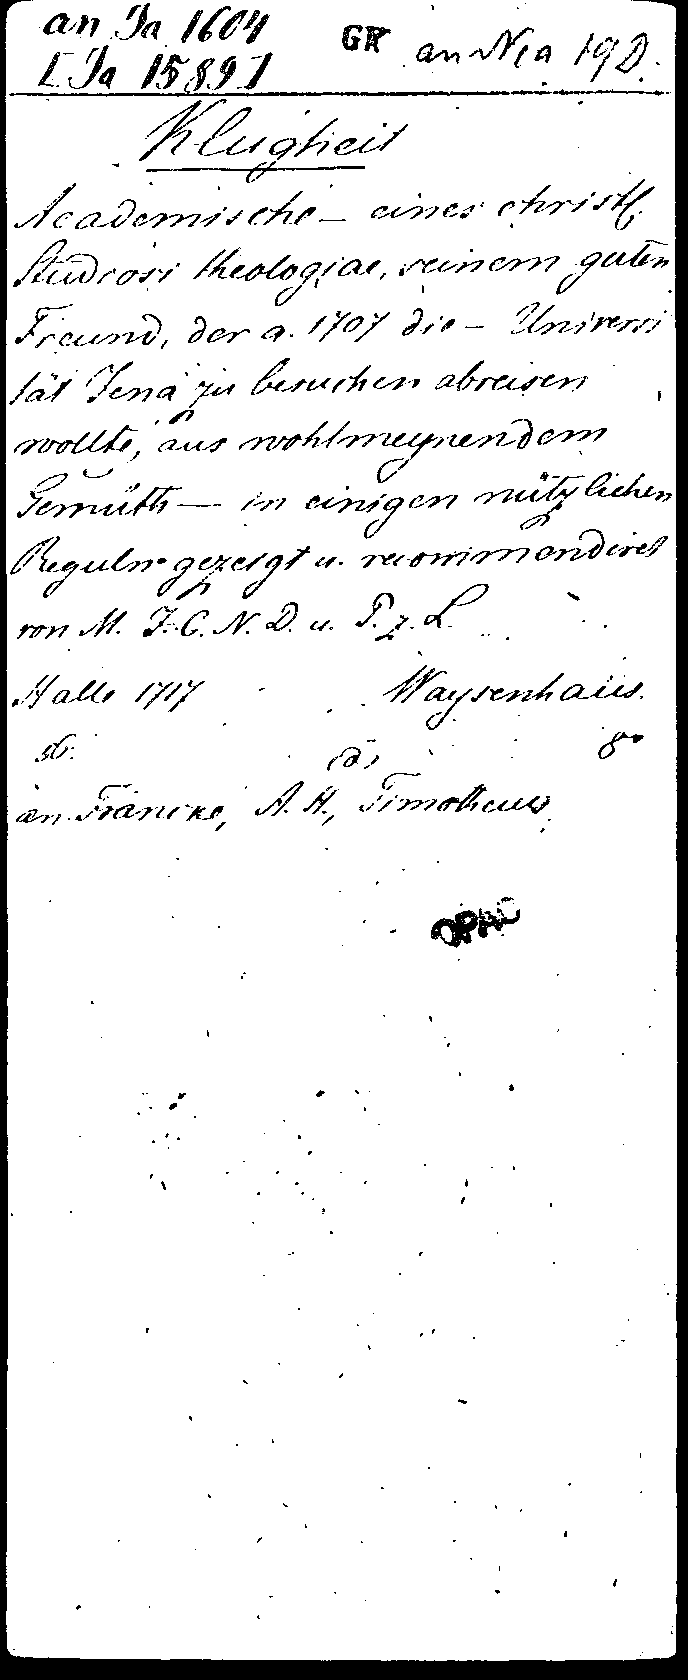 an Ja 1604 GR an N, a 19 D.
[Ja 1589]
Klugheit
Academische – eines christl.
Studiosi theologiae, seinem guten
Freund, der a. 1707 die – Universi
tät Jena zu besuchen abreisen
wollte, aus wohlmeynendem
Gemüth – in einigen nützlichen
Reguln gezeigt u. recommendiret
von M. J. C. N. D. u. P. z. L.
Halle 1717 Waysenhaus.
8°
an Francke, A. H., Timotheus
OPAC